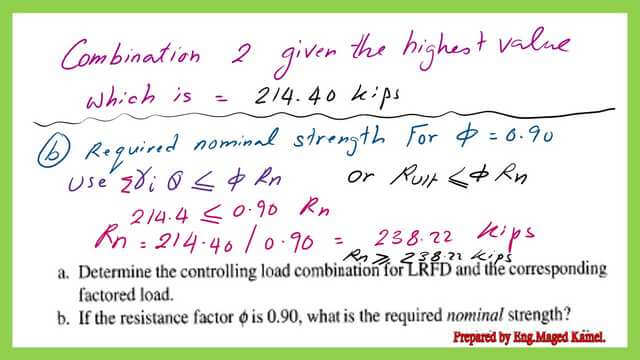 Combination 2 given the highest value
which is = 214.40 kips
(b) Required nominal strength For ϕ = 0.90
Use Σγi Q ≤ ϕ Rn or Rult ≤ ϕ Rn
214.4 ≤ 0.90 Rn
Rn = 214.40 / 0.90 = 238.22 kips
Rn ≥ 238.22 kips
a. Determine the controlling load combination for LRFD and the corresponding
factored load.
b. If the resistance factor ϕ is 0.90, what is the required nominal strength?
Prepared by Eng.Maged Kamel.